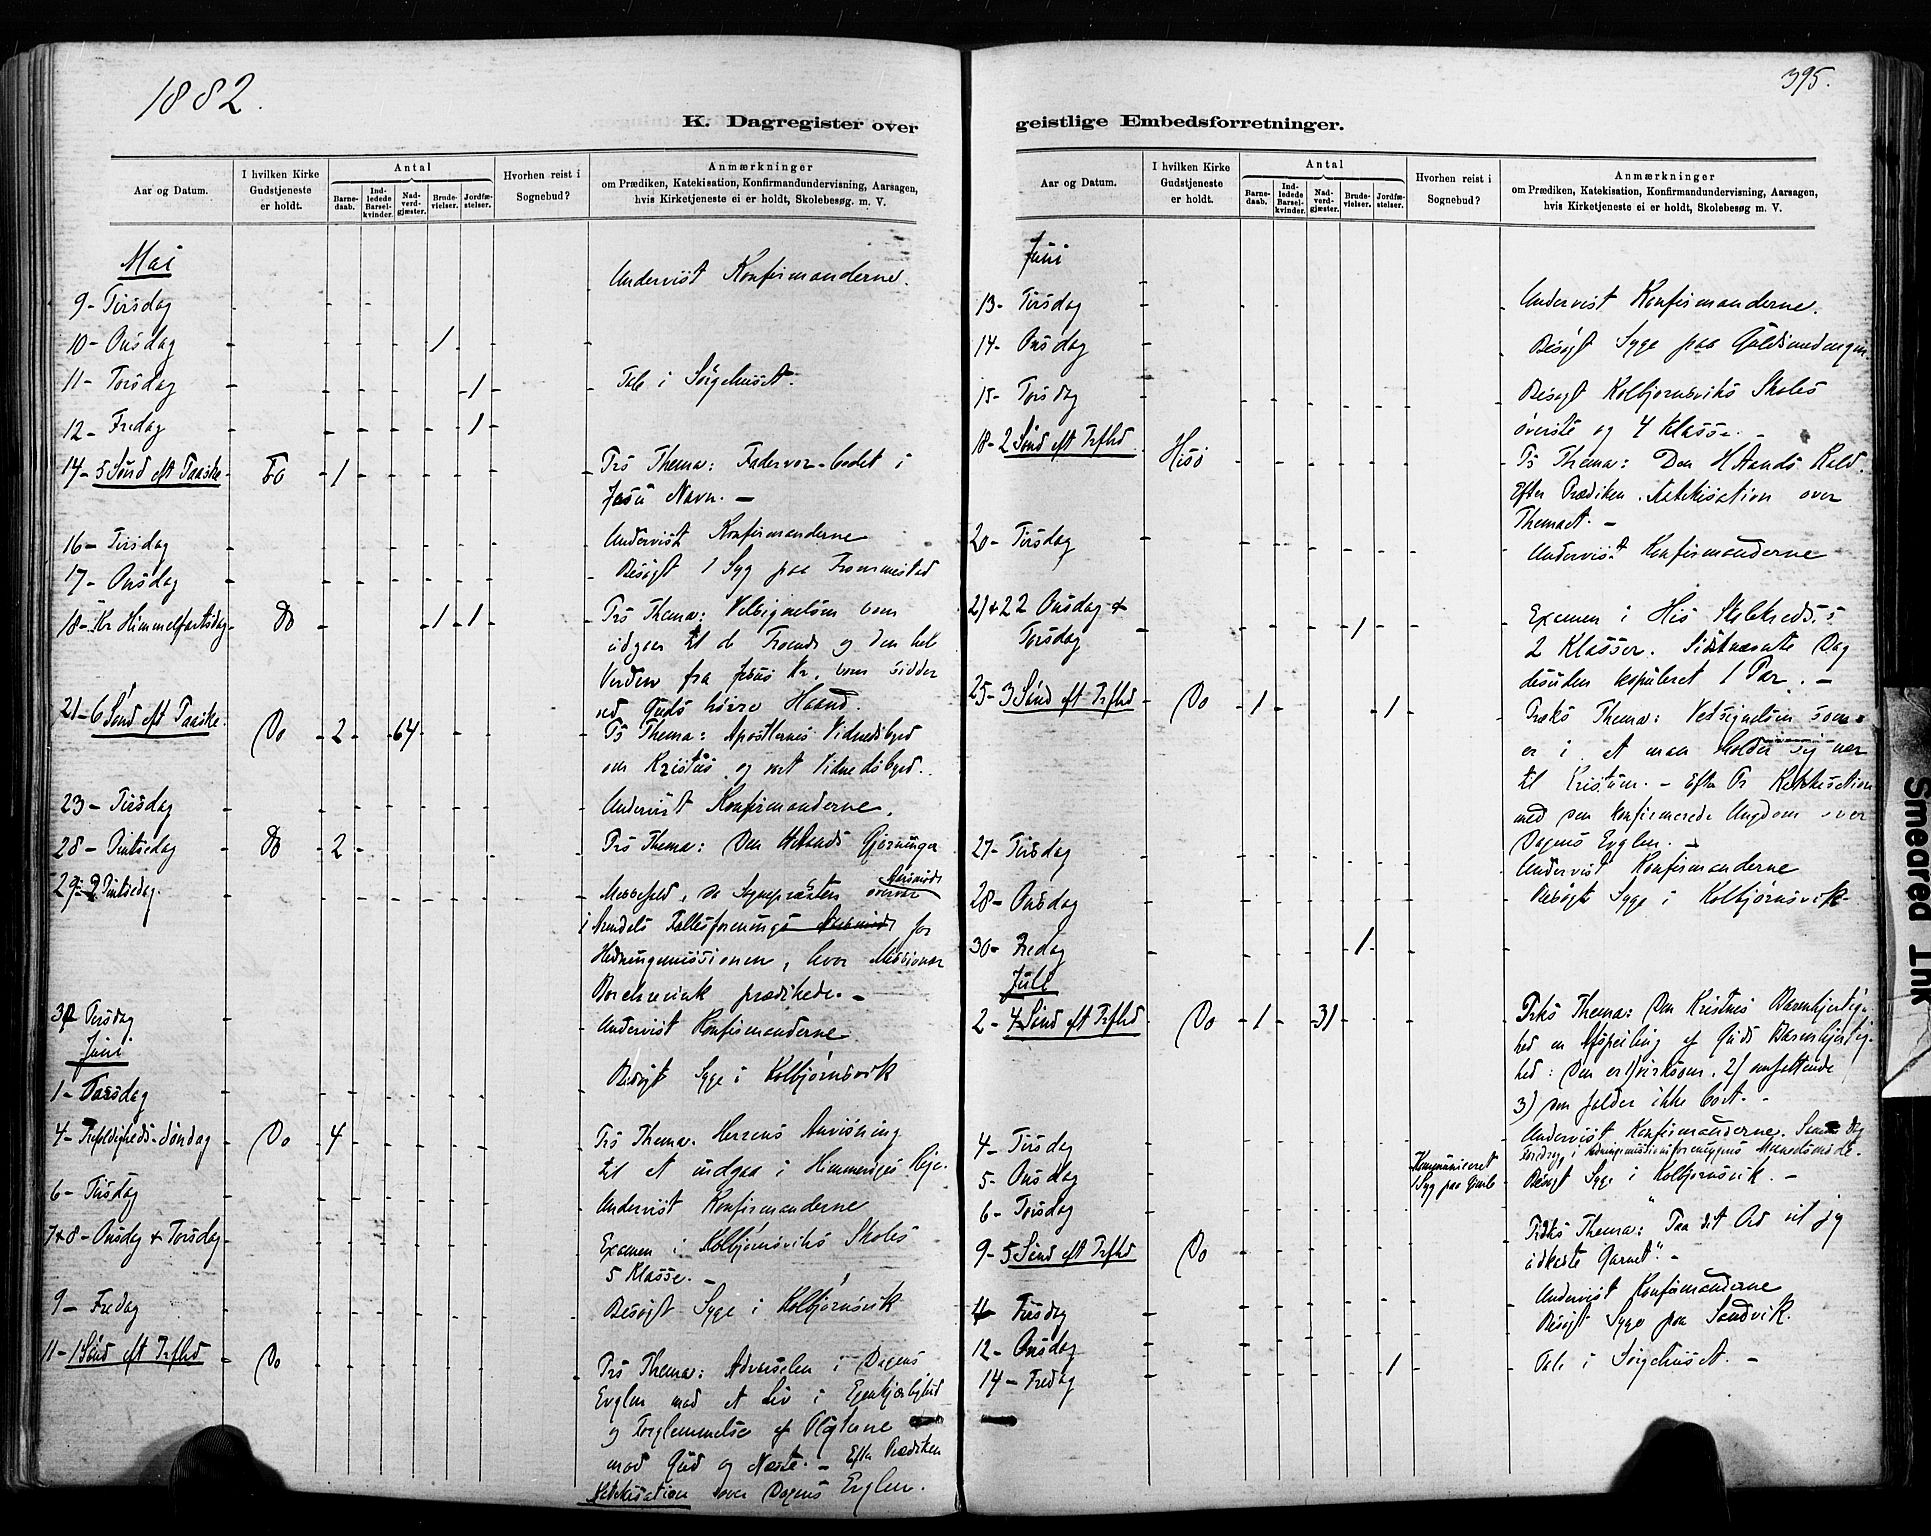 1882.
395.
K. Dagregister over
geistlige Embedsforretninger.
Aar og Datum.
I hvilken Kirke Gudstjeneste er holdt.
Antal
Barnedaab.
Indledede Barselkvinder.
Nadverdgjæster.
Brudevielser.
Jordfæstelser.
Hvorhen reist i Sognebud?
Anmærkninger
om Prædiken, Katekisation, Konfirmandundervisning, Aarsagen,
hvis Kirketjeneste ei er holdt, Skolebesøg. m. V.
Mai
9 - Tirsdag - Undervist Konfirmanderne.
10 - Onsdag - 1
11 - Torsdag - 1 - Tale i Sørgehuset.
12 - Fredag - 1
14 - 5 Sønd eft Paaske - 1 - Prs Thema: Fadervor - bedet i
Jesu Navn. -
16 - Tirsdag - Undervist Konfirmanderne
17 - Onsdag - Besøgt 1 Syg paa
18 - Kr Himmelfartsdag - Do - 1 1 Prs Thema: Velsignelsen som
udgaar til de Troende og den hele
Verden fra Jesus Kr. som sidder
ved Guds høire Haand.
21 - 6 Sønd eft Paaske. Do - 2 - 64 - Ps Thema: Apostlernes Vidnedsbyrd
om Kristus og vort Vidnedsbyrd.
23 - Tirsdag - Undervist Konfirmanderne.
28 - Pintsedag - Do - 2 - Prs Thema: Den HelAands Gjerninger
29 - 2 Pintsedag - Messefald, da Sognepræsten overvar
Aarsmøde
i Arendals Fællesforenings Aarsmøde for
Hedningemissionen, hvor Missionær
Borchrevink prædikede. -
30 Tirsdag - Undervist Konfirmanderne
Juni
1 - Torsdag - Besøgt Syge i Kolbjørnsvik
4 - Trefoldigheds-Søndag - Do - 4 - Prs Thema. Herrens Anvisning
til at indgaa i Himmeriges Rige.
6 - Tirsdag - Undervist Konfirmanderne
7 & 8 - Onsdag & Torsdag - Examen i Kolbjørnsviks Skoles
5 Klasse. -
9 - Fredag - Besøgt Syge i Kolbjørnsvik
11 - 1 Sønd eft Trfhd - Do - Prs Thema: Advarselen i Dagens
Evglm mod et Liv i Egenkjærlighed
og Forglemmelse af Pligterne
mod Gud og Næste. - Efter Prædiken
Katekisation over Dagens Evglm.
Aar og Datum.
I hvilken Kirke Gudstjeneste er holdt.
Antal
Barnedaab.
Indledede Barselkvinder.
Nadverdgjæster.
Brudevielser.
Jordfæstelser.
Hvorhen reist i Sognebud?
Anmærkninger
om Prædiken, Katekisation, Konfirmandundervisning, Aarsagen,
hvis Kirketjeneste ei er holdt, Skolebesøg m. V.
Juni
13 - Tirsdag - Undervist Konfirmanderne.
14 - Onsdag - Besøgt Syge paa
15 - Torsdag - Besøgt Kolbjørnsviks Skoles
øverste og 4 Klasse. -
18 - 2 Sønd eft Trfhd. Hisø - Ps Thema: Den H Aands Kald.
Efter Prædiken. Katekisation over
Themaet. -
20 - Tirsdag - Undervist Konfirmanderne
21 & 22 Onsdag & Torsdag - 1 - Examen i His
2 Klasser. Sidstnævnte Dag
desuden kopuleret 1 Par. -
25 - 3 Sønd eft Trfhd - Do - 1 - 1 - Prdks Thema: Velsignelsen som
er i at man holder sig nær
til Kristum. - Efter Pr Katekisation
med den konfirmerede Ungdom over
Dagens Evglm. -
27 - Tirsdag - Undervist Konfirmanderne
28 - Onsdag - Besøgt Syge i Kolbjørnsvik -
30 - Fredag - 1
Juli
2 - 4 Sønd eft Trfhd - Do - 1 - 31 - Prks Thema: Den Kristnes Barmhjertig-
hed en Afspeiling af Guds Barmhjertig-
hed: Den er 1) virksom. 2) omfattende
3) den falder ikke bort. -
4 - Tirsdag - Undervist Konfirmanderne. Samme Dag
Foredrag i Hedningemissionsforeningens Maanedsmøde.
5 - Onsdag - Kommuniceret
1 Syg paa - Besøgt Syge i Kolbjørnsvik. -
6 - Torsdag
9 - 5 Sønd eft Trfhd - Do - Prdks Thema: "Paa dit Ord vil jeg
udkaste Garnet". -
11 - Tirsdag - Undervist Konfirmanderne
12 - Onsdag - Besøgt Syge paa Sandvik.
14 - Fredag - 1 - Tale i Sørgehuset. -
Smeared Ink